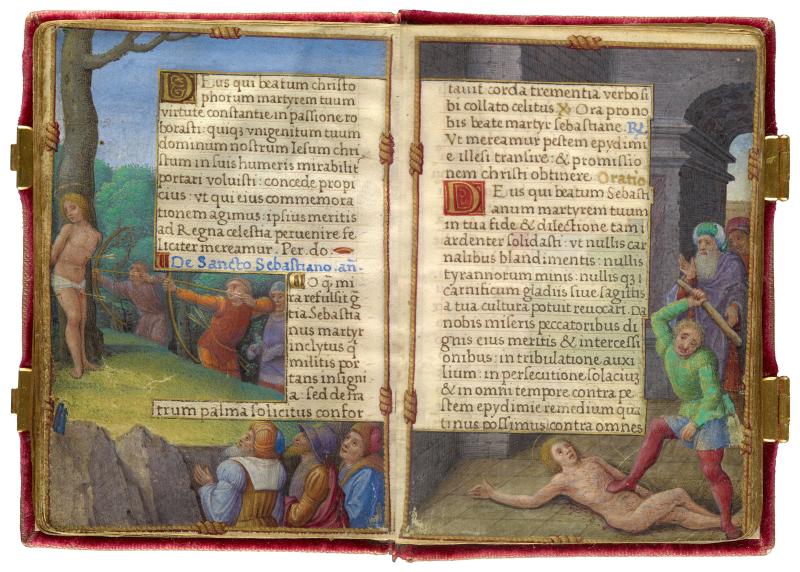 Eus qui beatum christo
phorum martyrem tuum
virtute constantie in passione ro
borasti: quiq3 vnigenitum tuum
dominum nostrum Iesum chri
stum in suis humeris mirabilit
portari voluisti: concede propi
cius: vt qui eius commemora
tionem agimus: ipsius meritis
ad Regna celestia peruenire fe
liciter mereamur. Per. do.
De Sancto Sebastiano. añ.
O q̃ mi
ra refulsit g̃
tia Sebastia
nus martyr
inclytus q̃
militis por
tans insigni
a: sed de fra
trum palma solicitus confor
tauit corda trementia verbo si
bi collato celitus ℣ Ora pro no
bis beate martyr sebastiane. ℟.
Vt mereamur pestem epydimi
e illesi transire: & promissio
nem christi obtinere Oratio
DEus qui beatum Sebasti
anum martyrem tuum
in tua fide & dilectione tam i
ardenter solidasti: vt nullis car
nalibus blandimentis: nullis
tyrannorum minis: nullis q3 i
carnificum gladiis siue sagittis
a tua cultura potuit reuocari. Da
nobis miseris peccatoribus di
gnis eius meritis & intercessi
onibus: in tribulatione auxi
lium: in persecutione solaciuz
& in omni tempore contra pe
stem epydimie remedium qua
tinus possimus contra omnes